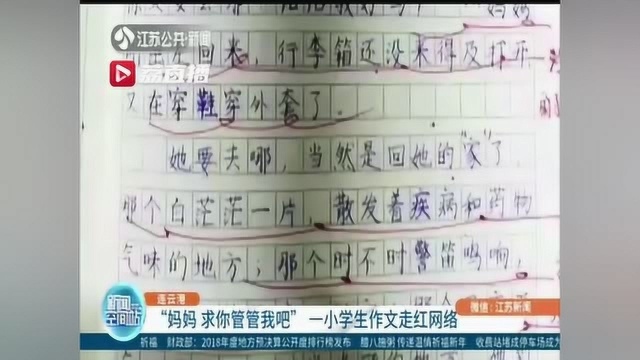 江苏公共·新闻
荔直播
妈妈
回来，行李箱还没来得及打开，
又在穿鞋穿外套了。
她要去哪，当然是回她的“家”了，
那个白茫茫一片，散发着疾病和药物
气味的地方；那个时不时警笛鸣响，
新闻空间站
连云港
微信：江苏新闻
“妈妈 求你管管我吧” 一小学生作文走红网络
祈福 财政部：2018年度地方预决算公开度排行榜发布 腊八施粥 传递温情祈福新年 收费站堵成停车场成为